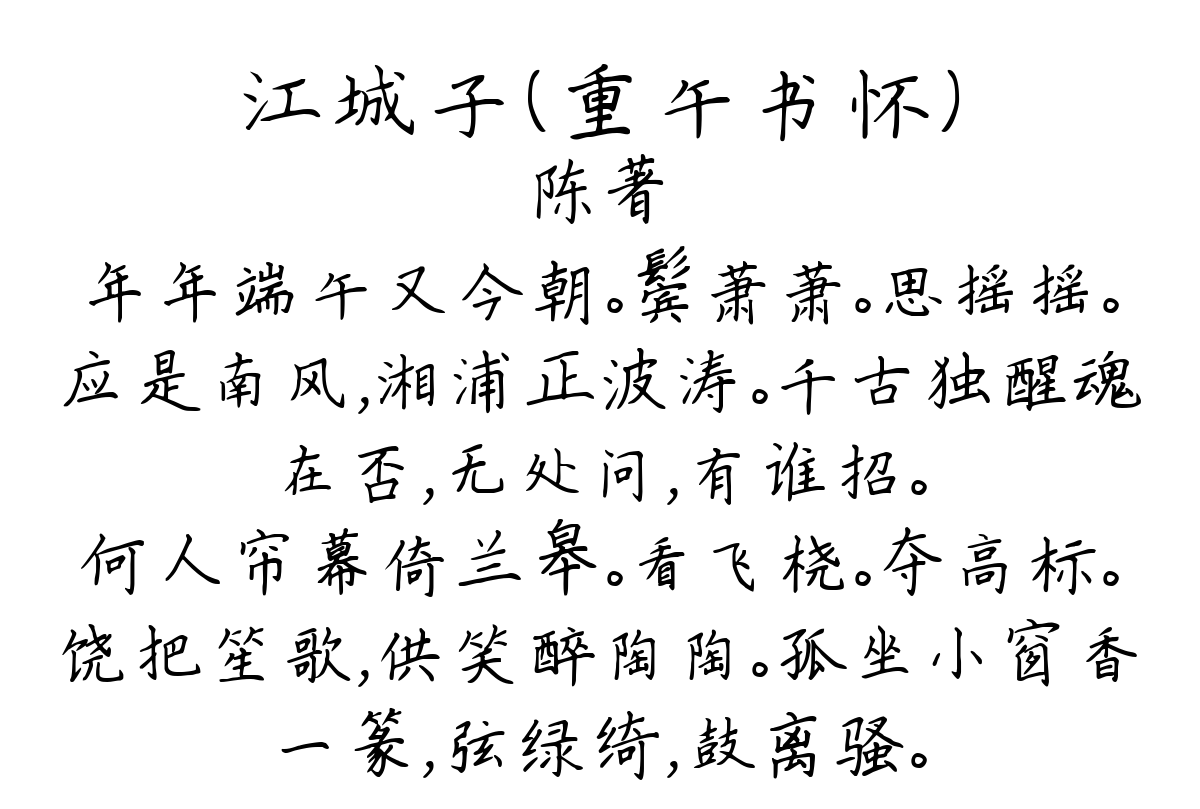 江城子(重午书怀)
陈著
年年端午又今朝。鬓萧萧。思摇摇。
应是南风,湘浦正波涛。千古独醒魂
在否,无处问,有谁招。
何人帘幕倚兰皋。看飞桡。夺高标。
饶把笙歌,供笑醉陶陶。孤坐小窗香
一篆,弦绿绮,鼓离骚。